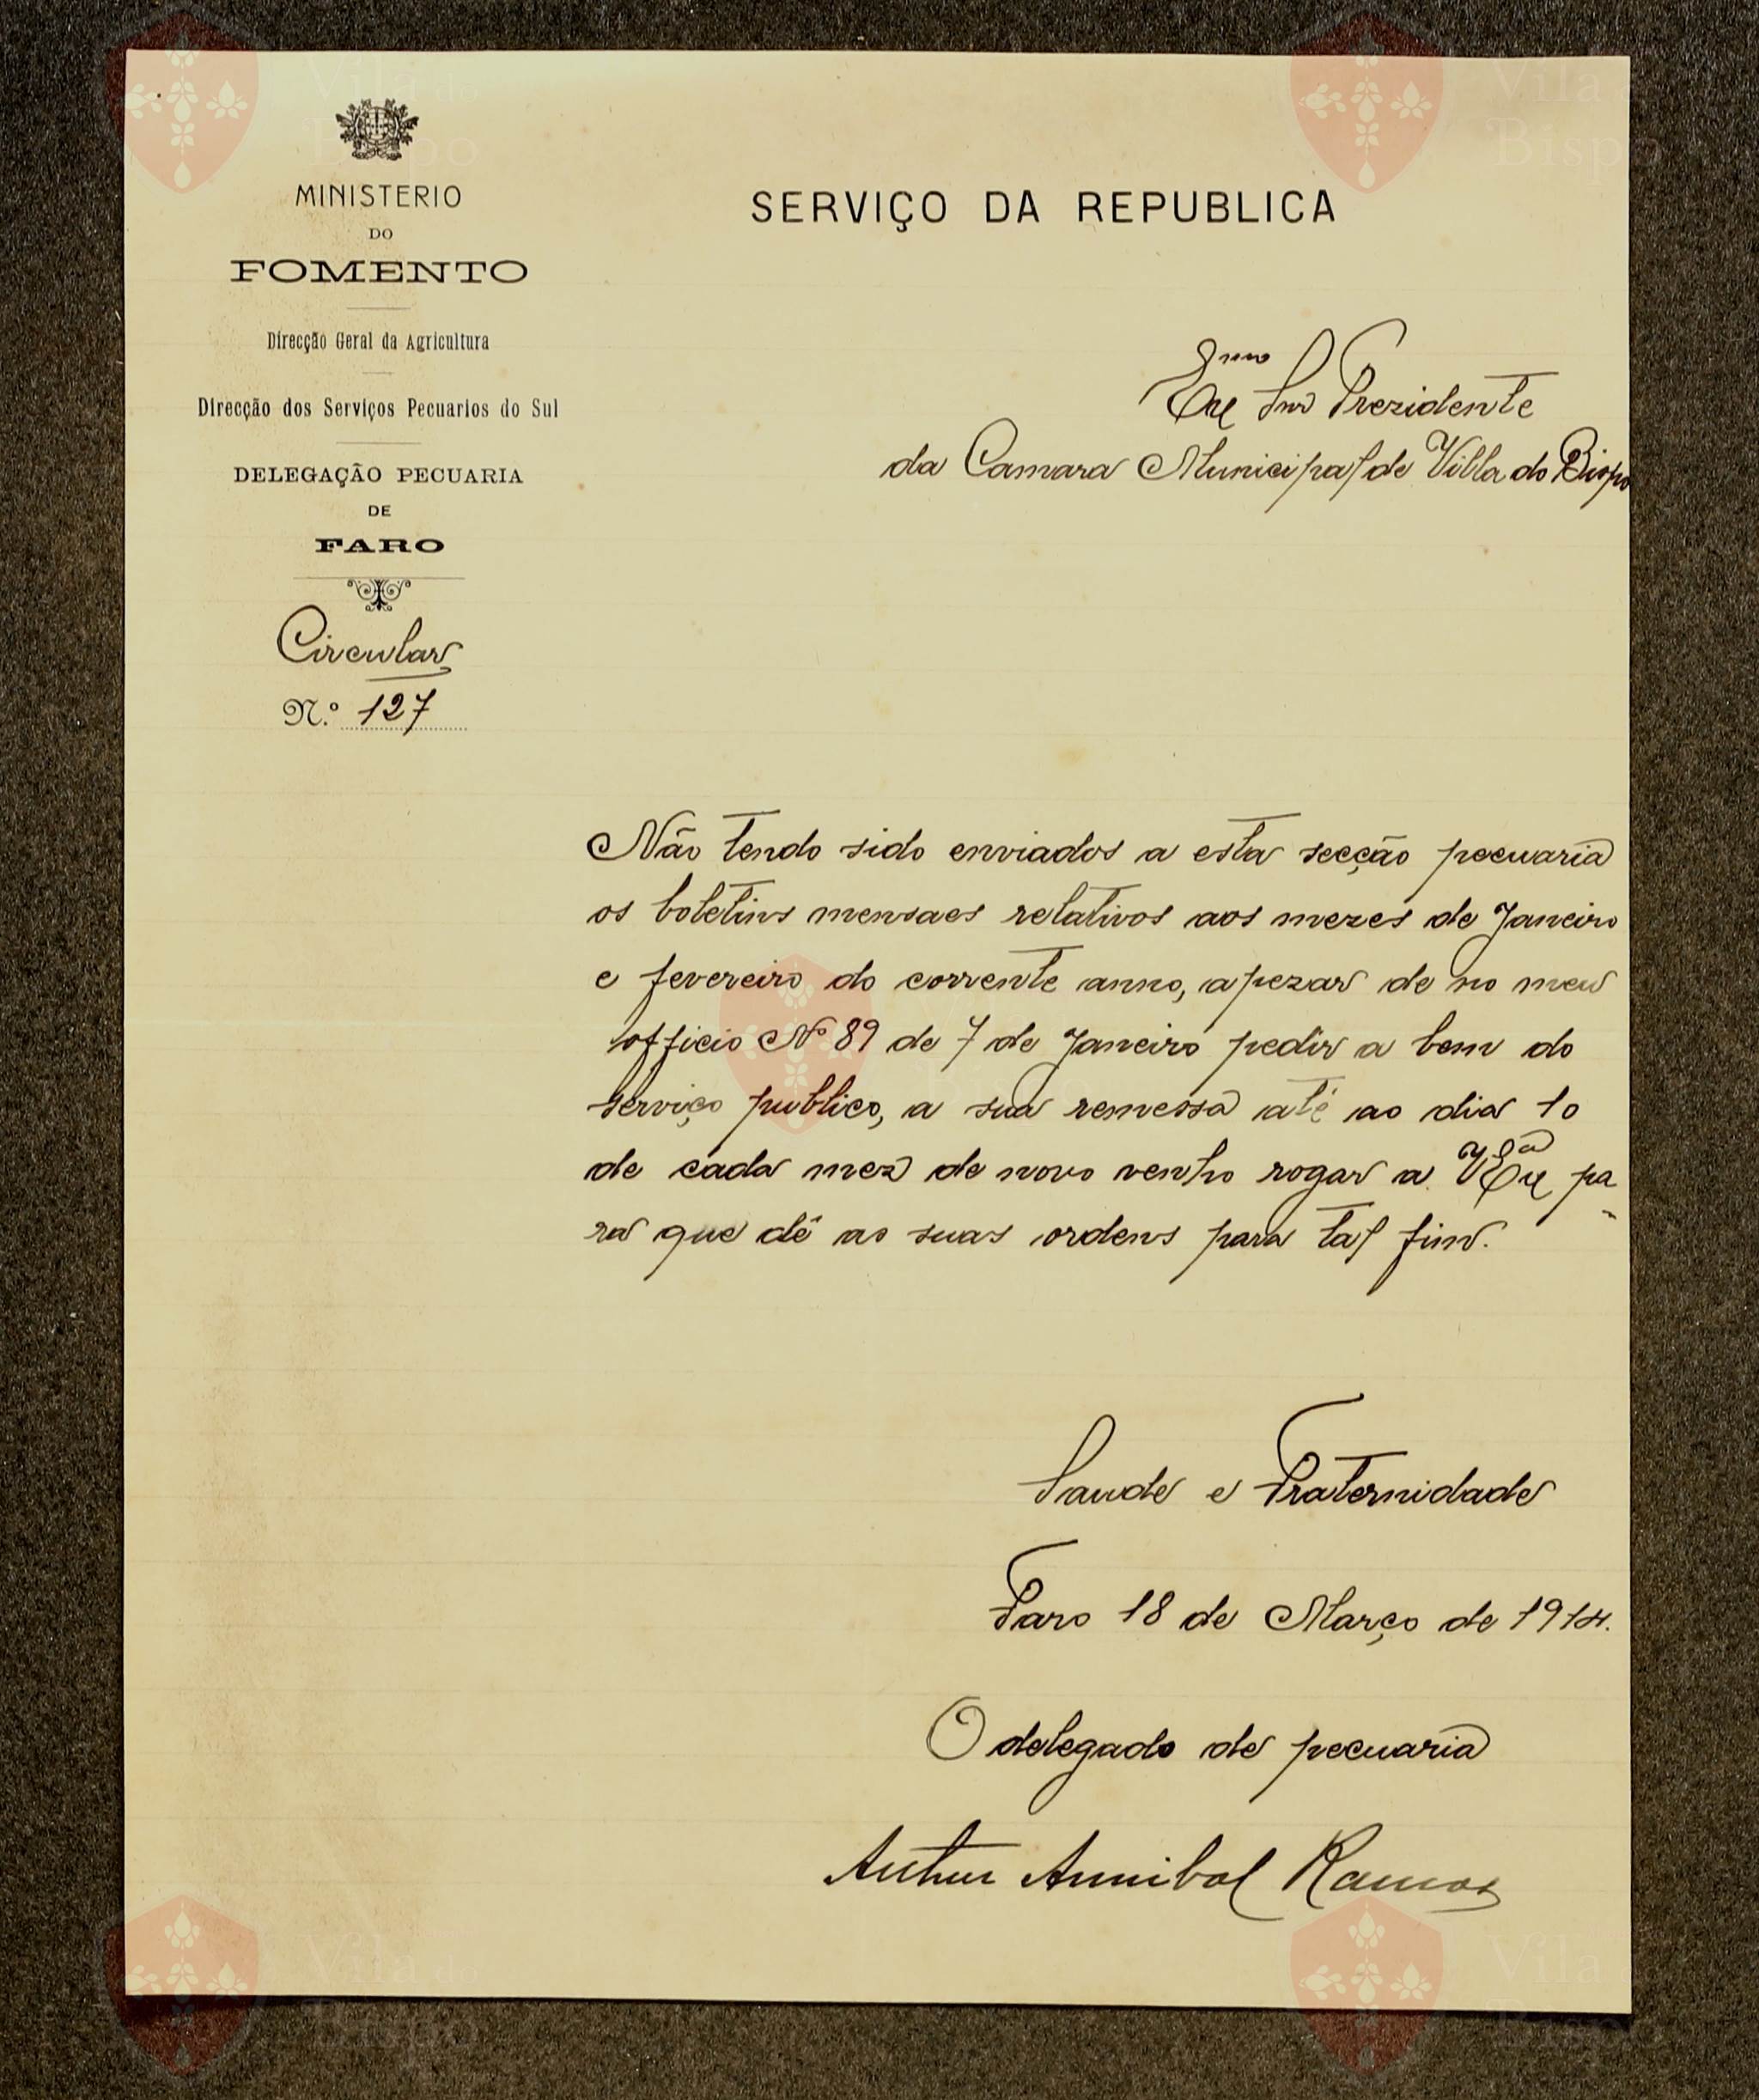 MINISTERIO
DO
FOMENTO
Direcção Geral da Agricultura
Direcção dos Serviços Pecuarios do Sul
DELEGAÇÃO PECUARIA
DE
FARO
Circular
N.º 127
SERVIÇO DA REPUBLICA
Exmo Snr Prezidente
da Camara Municipal de Villa do Bispo
Não tendo sido enviados a esta secção pecuaria
os boletins mensaes relativos aos mezes de Janeiro
e fevereiro do corrente anno, apezar de no meu
officio Nº 89 de 7 de Janeiro pedir a bem do
serviço publico, a sua remessa até ao dia 10
de cada mez de novo venho rogar a V Exª pa
ra que dê as suas ordens para tal fim.
Saude e Fraternidade
Faro 18 de Março de 1914.
O delegado de pecuaria
Arthur Annibal Ramos
Vila do
Bispo
Vila do
Bispo
Vila do
Bispo
Vila
Bispo